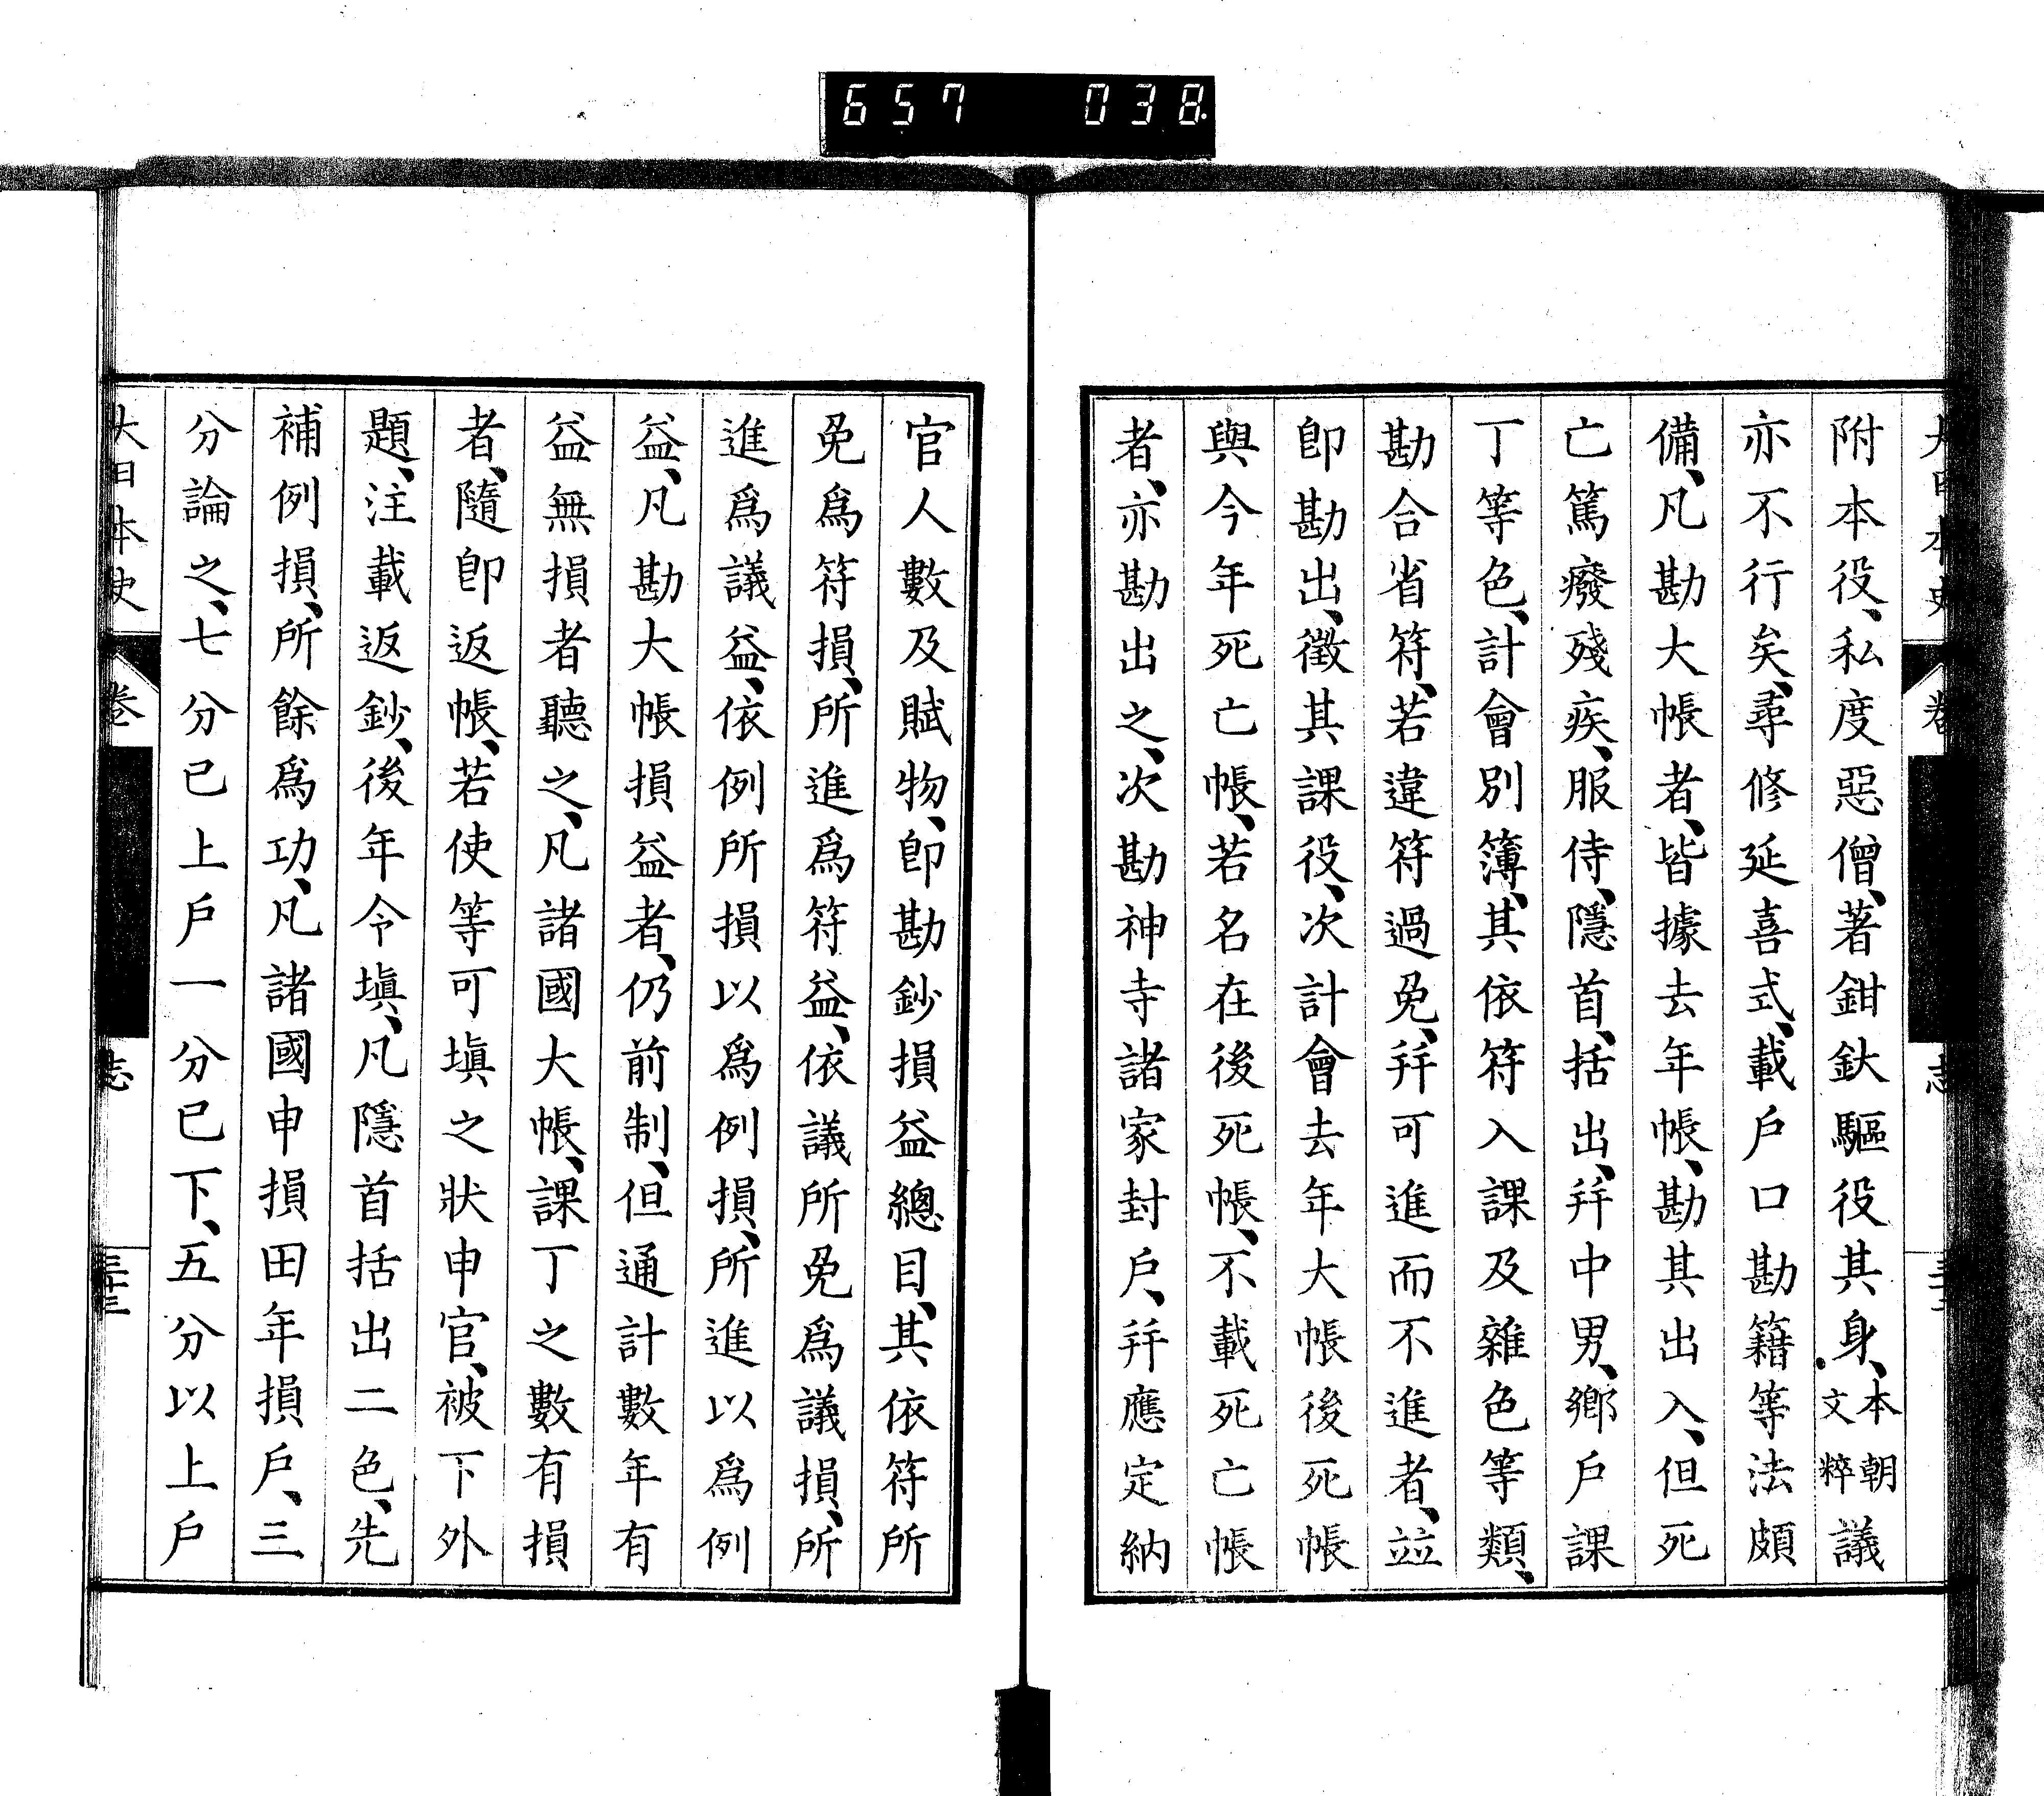 657 038
附本役、私度惡僧、著鉗釱驅役其身、本朝文粹議
亦不行矣、尋修延喜式、載戶口勘籍等法頗
備、凡勘大帳者、皆據去年帳、勘其出入、但死
亡篤癈殘疾、服侍、隱首、括出、幷中男、鄉戶課
丁等色、計會別簿、其依符入課及雜色等類、
勘合省符、若違符過免、幷可進而不進者、並
卽勘出、徵其課役、次計會去年大帳後死帳
與今年死亡帳、若名在後死帳、不載死亡帳
者、亦勘出之、次勘神寺諸家封戶、幷應定納
官人數及賦物、卽勘鈔損益總目、其依符所
免爲符損、所進爲符益、依議所免爲議損、所
進爲議益、依例所損以爲例損、所進以爲例
益、凡勘大帳損益者、仍前制、但通計數年有
益無損者聽之、凡諸國大帳、課丁之數有損
者、隨卽返帳、若使等可塡之狀申官、被下外
題、注載返鈔、後年令塡、凡隱首括出二色、先
補例損、所餘爲功、凡諸國申損田年損戶、三
分論之、七分已上戶一分已下、五分以上戶
大日本史 卷 志 三十三